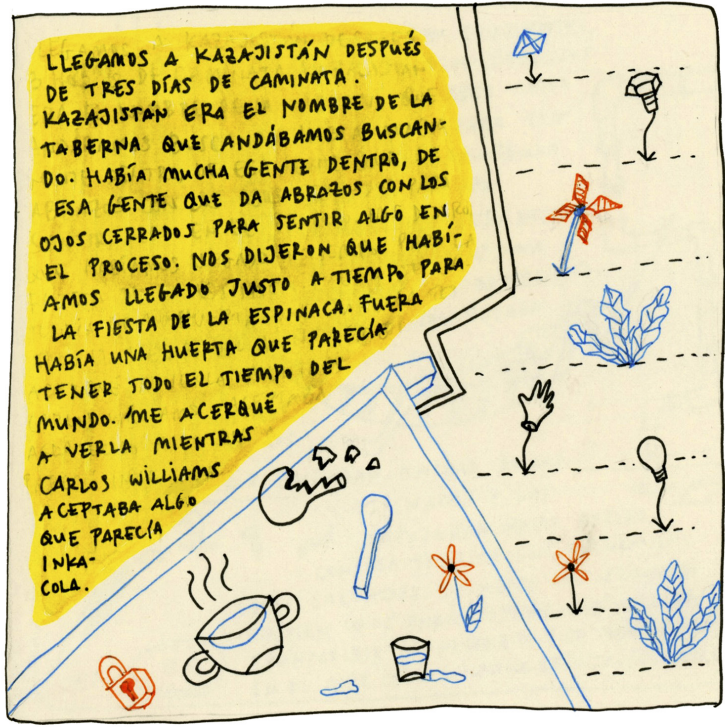 LLEGAMOS A KAZAJISTÁN DESPUÉS
DE TRES DÍAS DE CAMINATA.
KAZAJISTÁN ERA EL NOMBRE DE LA
TABERNA QUE ANDÁBAMOS BUSCAN-
DO. HABÍA MUCHA GENTE DENTRO, DE
ESA GENTE QUE DA ABRAZOS CON LOS
OJOS CERRADOS PARA SENTIR ALGO EN
EL PROCESO. NOS DIJERON QUE HABÍ-
AMOS LLEGADO JUSTO A TIEMPO PARA
LA FIESTA DE LA ESPINACA. FUERA
HABÍA UNA HUERTA QUE PARECÍA
TENER TODO EL TIEMPO DEL
MUNDO. ME ACERQUÉ
A VERLA MIENTRAS
CARLOS WILLIAMS
ACEPTABA ALGO
QUE PARECÍA
INKA-
COLA.